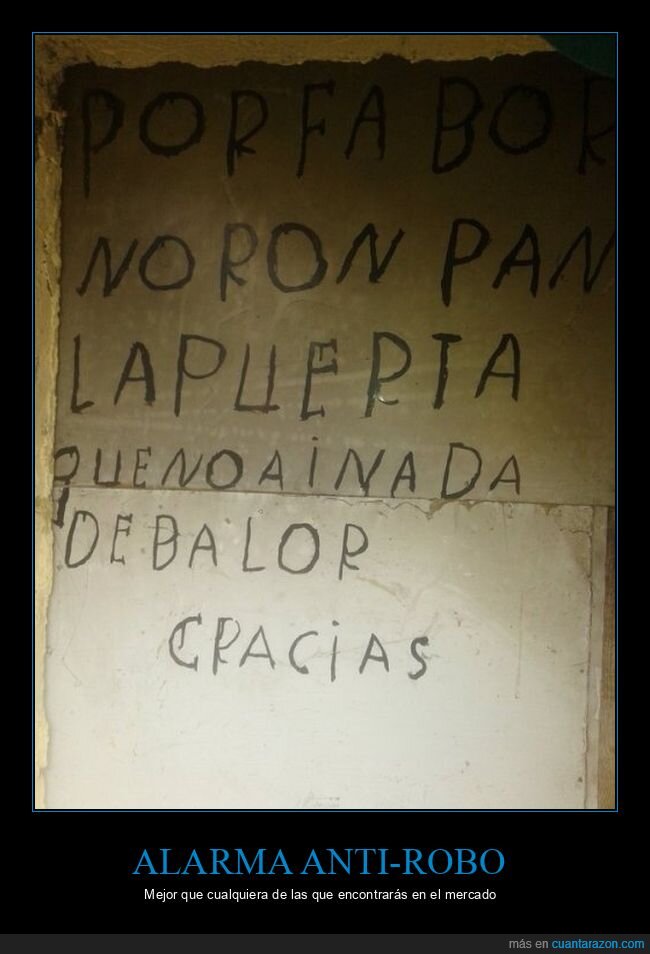 PORFA BOR
NO RON PAN
LA PUERTA
QUE NO AI NADA
DE BALOR
GRACIAS
ALARMA ANTI-ROBO
Mejor que cualquiera de las que encontrarás en el mercado
más en cuantarazon.com